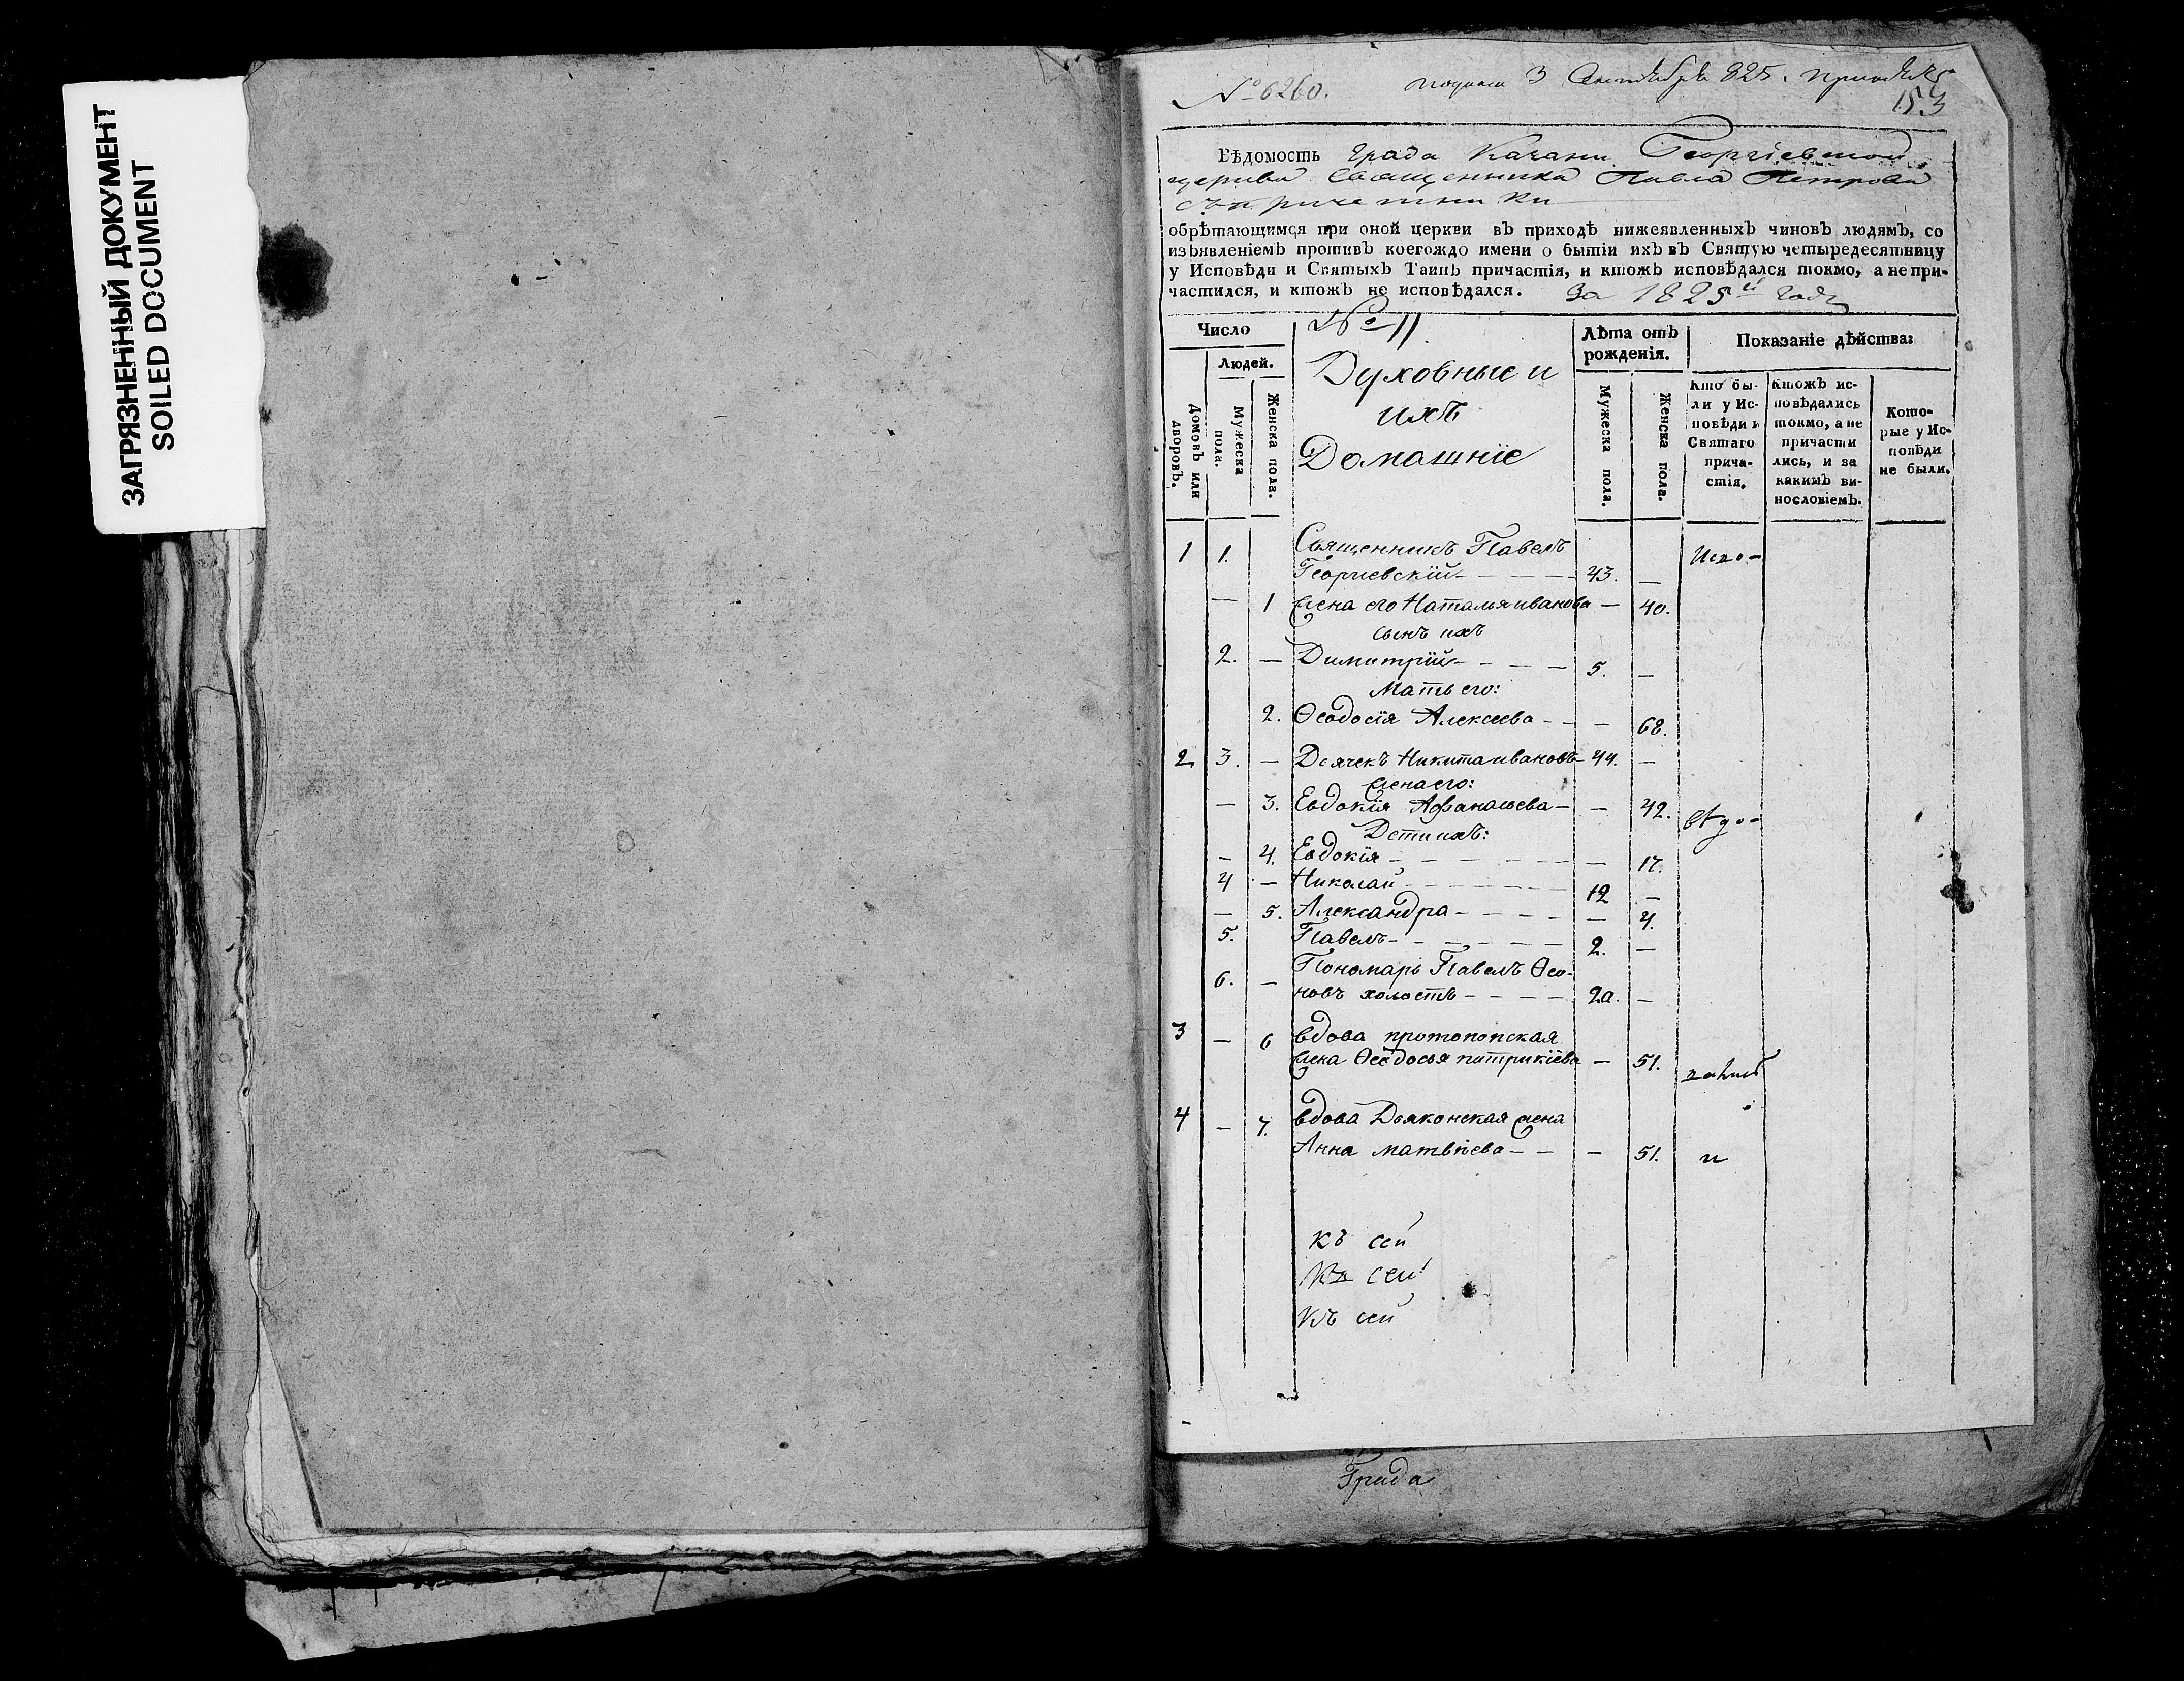 ЗАГРЯЗНЕННЫЙ ДОКУМЕНТ
SOILED DOCUMENT
№ 6260.
3 Сентября 825.
153
Вѣдомость града Казани Георгіевской
церкви Священника Павла Петрова
съ причетники
обрѣтающимся при оной церкви въ приходѣ нижеявленныхъ чиновъ людямъ, со
изъявленіемъ противъ коегождо имени о бытіи ихъ въ Святую четыредесятницу
у Исповѣди и Святыхъ Таинъ причастія, и ктожъ исповѣдался токмо, а не при-
частился, и ктожъ не исповѣдался. За 1825й годъ
Число
Людей.
Домовъ или дворовъ.
Мужеска пола.
Женска пола.
№ 11
Духовные и
ихъ
Домашніе
Лѣта отъ рожденія.
Мужеска пола.
Женска пола.
Показаніе дѣйства:
Кто бы-
ли у Ис-
повѣди и
Святаго
прича-
стія.
Ктожъ ис-
повѣдались
токмо, а не
причасти
лись, и за
какимъ ви-
нословіемъ.
Кото-
рые у Ис-
повѣди
не были.
1 1. Священникъ Павелъ
Георгіевскій - - - - 43. — Испо-
— 1 жена его Наталья иванова — 40.
сынъ ихъ
2. — Димитрій - - - - 5. —
Мать его:
2. Ѳеодосія Алексеева - - — 68.
2 3. — Дьячекъ Никита ивановъ - 44. —
жена его:
— 3. Евдокія Афанасьева — — 42.
Дети ихъ:
— 4. Евдокія - - - - — 17.
4 — Николай - - - - 12 —
— 5. Александра - - - - — 4.
5. Павелъ - - - - 2. —
6. — Пономарь Павелъ Ѳео-
новъ холостъ - - - - 20. —
3 — 6 вдова протопопская
жена Ѳеодосья патрикіева — 51.
4 — 7. вдова Дьяконская жена
Анна матвѣева - - — 51. и
Къ сей
Къ сей
Къ сей
Града